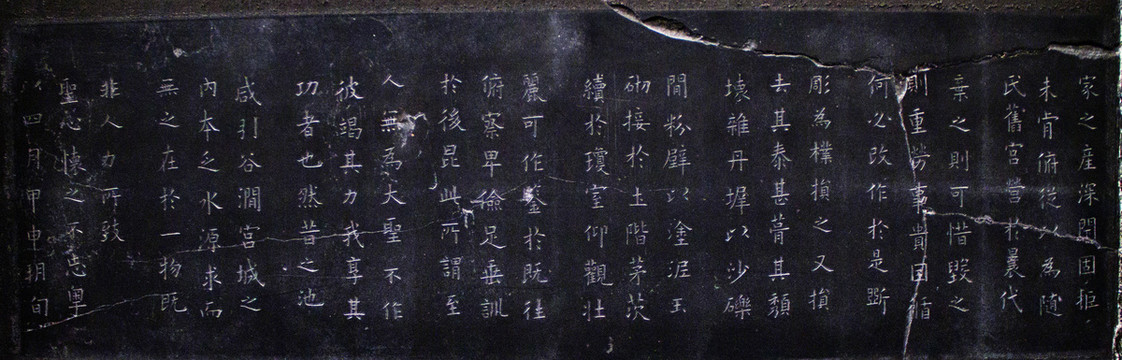 家之產深閉固拒
未肯俯從以為隨
民舊宮營於曩代
棄之則可惜毀之
則重勞事貴因循
何必改作於是斲
彫為樸損之又損
去其泰甚葺其頹
壞雜丹墀以沙礫
間粉壁以塗泥玉
砌接於土階茅茨
續於瓊室仰觀壯
麗可作鉴於既往
俯察卑儉足垂訓
於後昆此所謂至
人無為大聖不作
彼竭其力我享其
功者也然昔之池
咸引谷澗宮城之
內本乏水源求而
無之在於一物既
非人力所致
聖心懷之不忘粵
以四月甲申朔旬